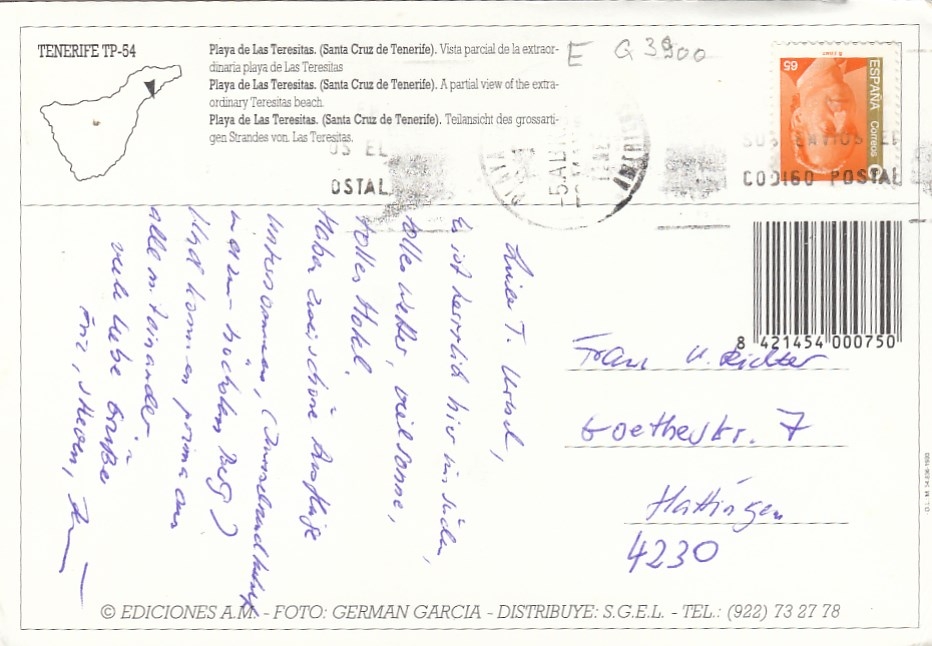 TENERIFE TP-54
Playa de Las Teresitas. (Santa Cruz de Tenerife). Vista parcial de la extraor-
dinaria playa de Las Teresitas
Playa de Las Teresitas. (Santa Cruz de Tenerife). A partial view of the extra-
ordinary Teresitas beach.
Playa de Las Teresitas. (Santa Cruz de Tenerife). Teilansicht des grossarti-
gen Strandes von. Las Teresitas.
E G 3900
65
ESPAÑA Correos
US EL
OSTAL
CODIGO POSTAL
Liebe T. Ursel,
Es ist herrlich hier im Süden,
tolles Wetter, viel Sonne,
tolles Hotel.
Habe zwei schöne Ausflüge
unternommen, (Inselrundfahrt
u. zum höchsten Berg)
Und kommen prima aus
alle miteinander
viele liebe Grüße
8 421454 000750
Frau U. Richter
Goethestr. 7
Hattingen
4230
© EDICIONES A.M. - FOTO: GERMAN GARCIA - DISTRIBUYE: S.G.E.L. - TEL.: (922) 73 27 78